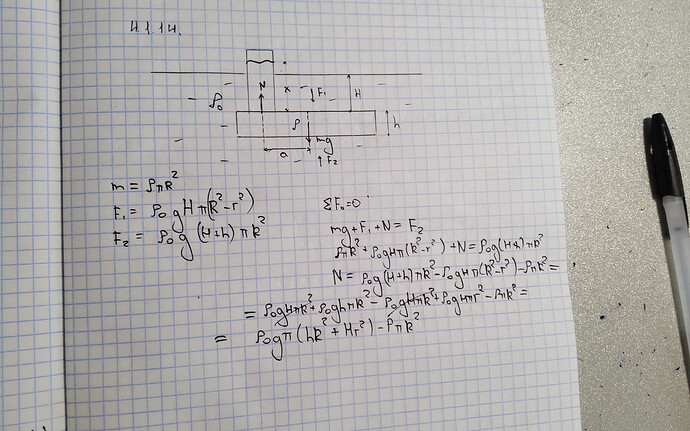 4.1.14.
N x F₁ H
ρ₀ ρ h
mg
a F₂
m = ρπR²
F₁ = ρ₀gHπ(R²-r²)
F₂ = ρ₀g(H+h)πR²
ΣF₀=0
mg+F₁+N=F₂
ρπR²+ρ₀gHπ(R²-r²)+N=ρ₀g(H+h)πR²
N=ρ₀g(H+h)πR²-ρ₀gHπ(R²-r²)-ρπR²=
=ρ₀gHπR²+ρ₀ghπR²-ρ₀gHπR²+ρ₀gHπr²-ρπR²=
= ρ₀gπ(hR²+Hr²)-ρπR²